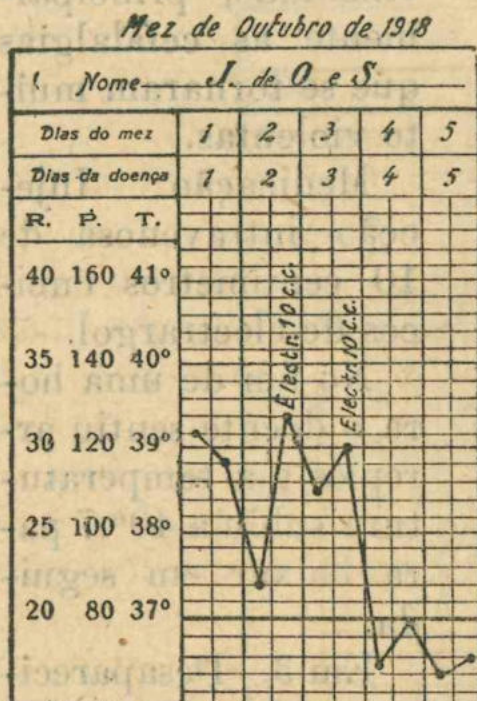 Mez de Outubro de 1918
Nome J. de O. e S.
Dias do mez 1 2 3 4 5
Dias da doença 1 2 3 4 5
R. P. T.
40 160 41º
35 140 40º
30 120 39º
25 100 38º
20 80 37º
Electr. 10 c.c.
Electr. 10 c.c.